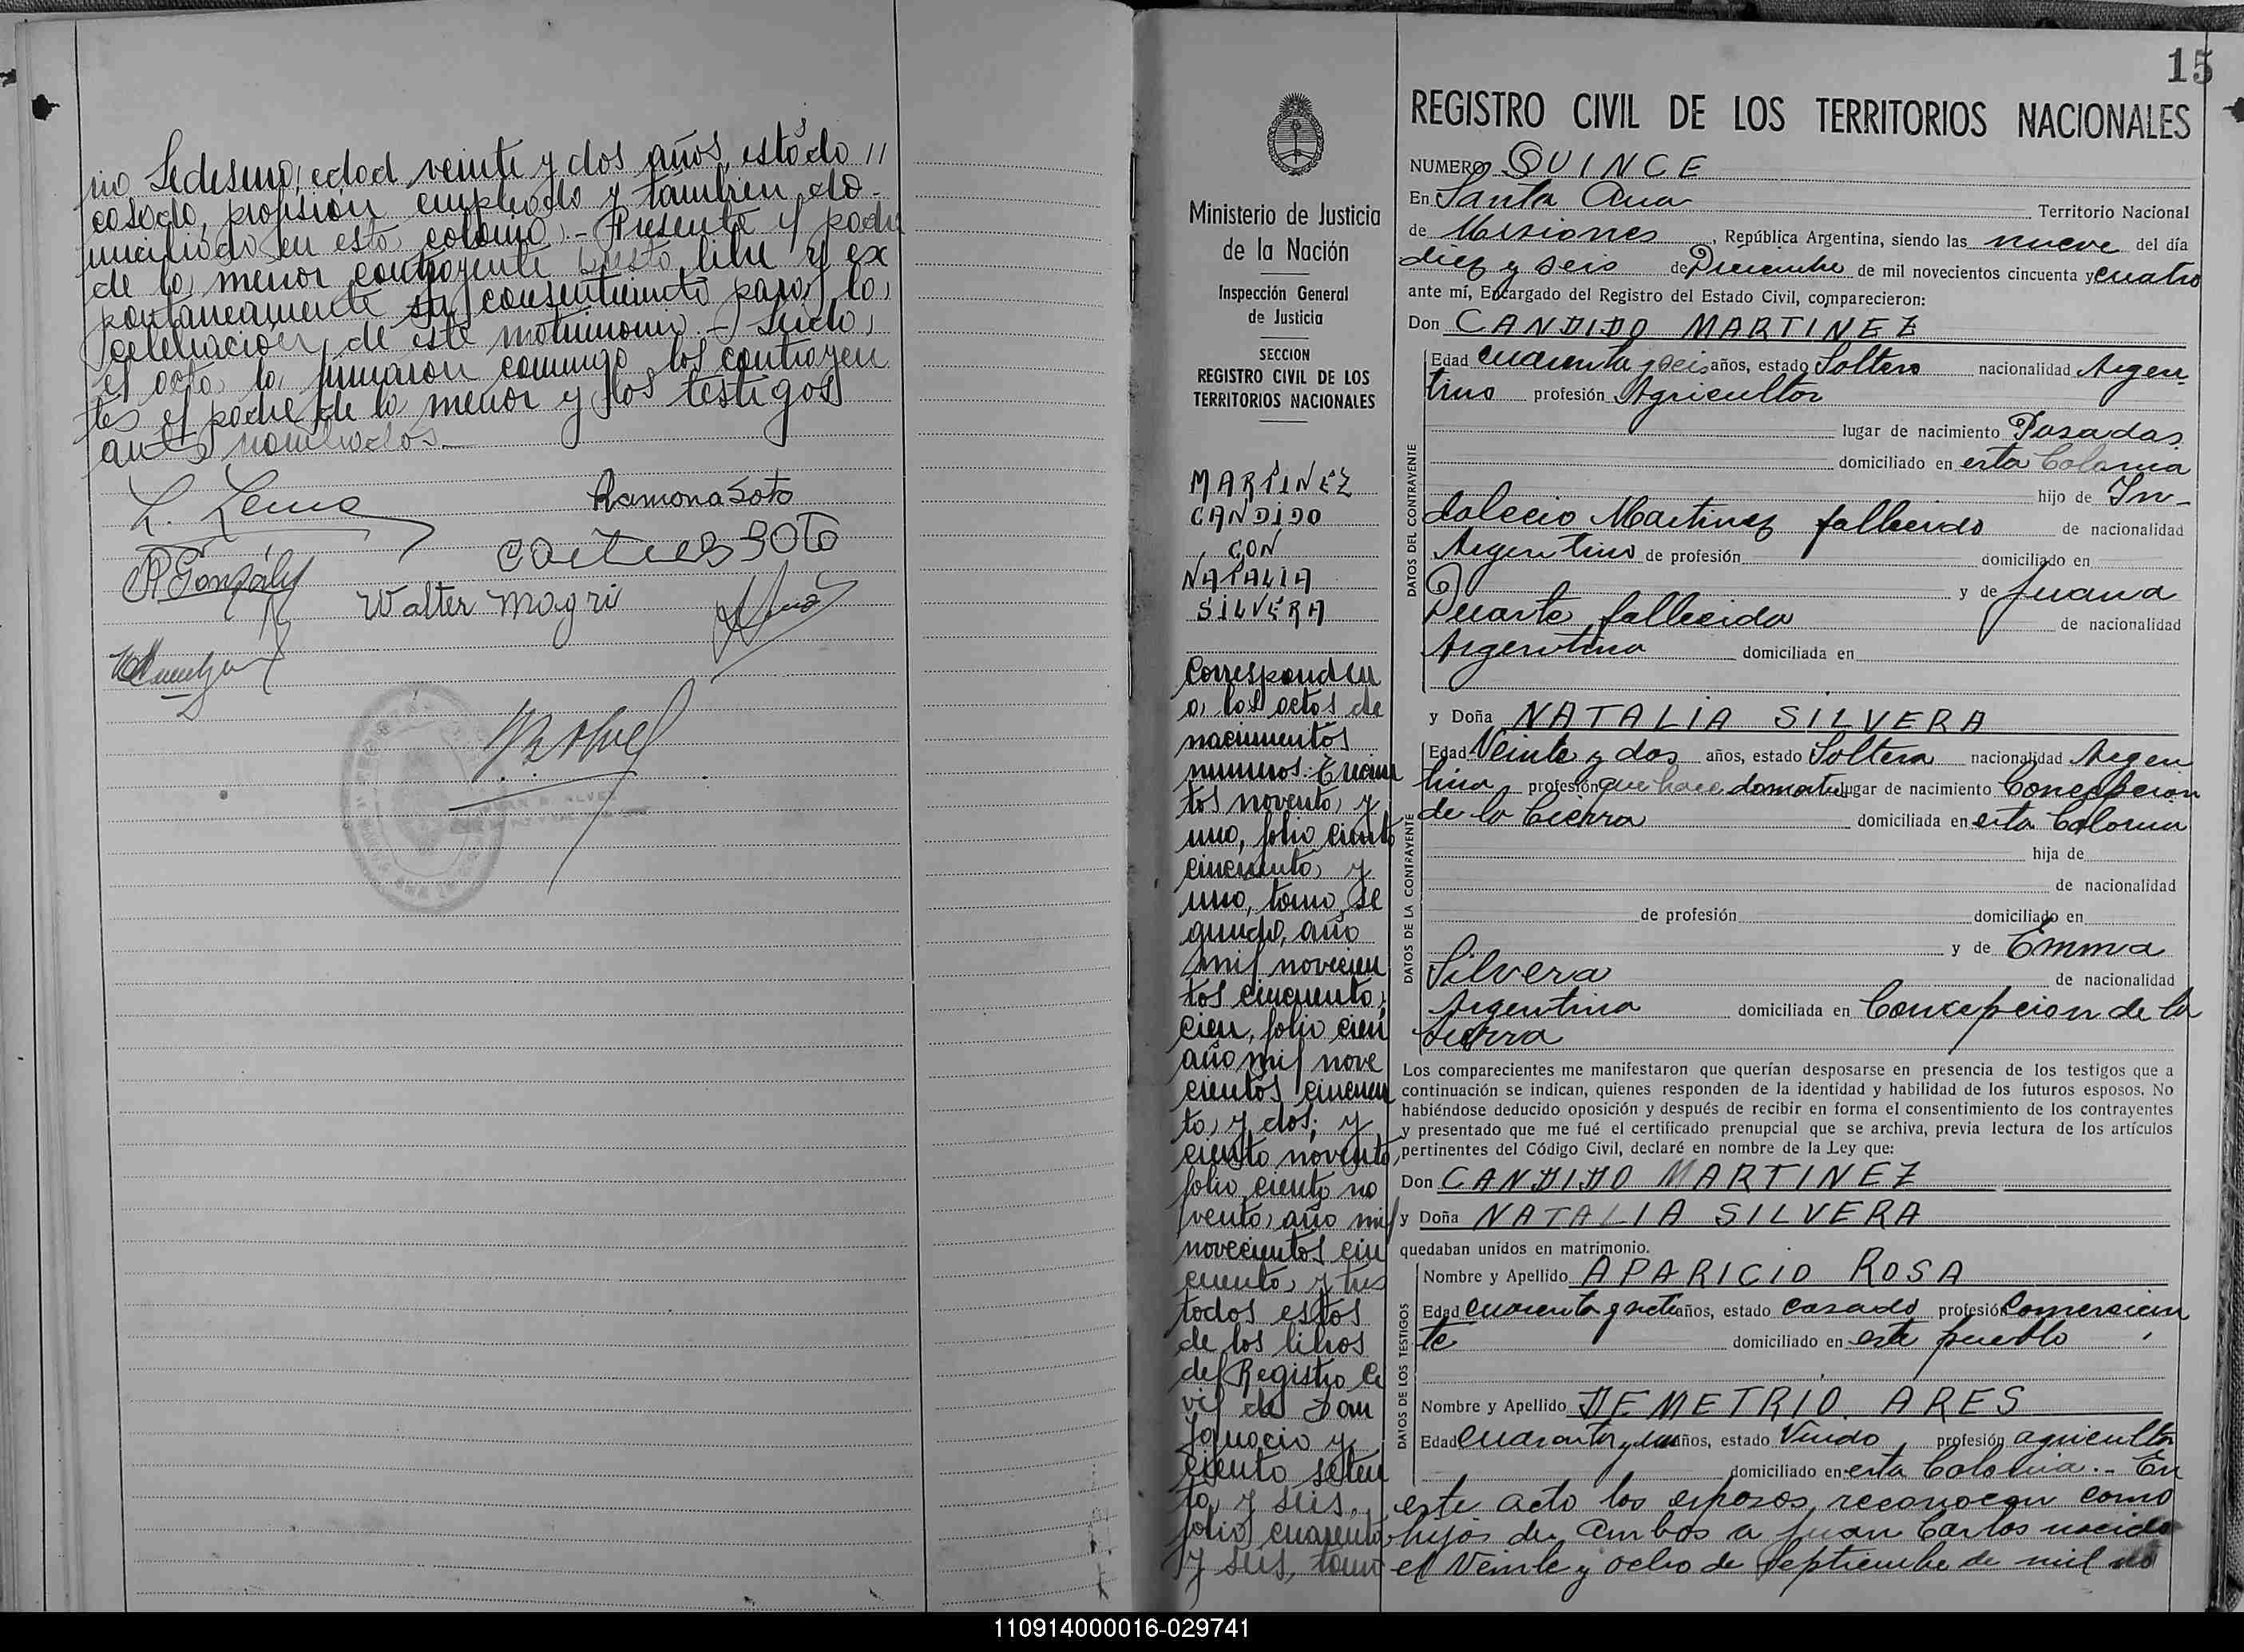 no Ledesma, edad veinte y dos años, estado //
casado, profesión empleado y tambien do-
miciliado en esta colonia.- Presente el padre
de la menor contrayente presto libre y ex
pontaneamente su consentimiento para la
celebración de este matrimonio.- Leida
el acta la firmaron conmigo los contrayen
tes el padre de la menor y los testigos
antes nombrados.-
L. Lema
Ramona Soto
SOTO
R Gonzalez
Walter Magri
15
REGISTRO CIVIL DE LOS TERRITORIOS NACIONALES
NUMERO QUINCE
En Santa Ana Territorio Nacional
de Misiones, República Argentina, siendo las nueve del día
diez y seis de Diciembre de mil novecientos cincuenta y cuatro
ante mí, Encargado del Registro del Estado Civil, comparecieron:
Don CANDIDO MARTINEZ
DATOS DEL CONTRAYENTE
Edad cuarenta y seis años, estado Soltero nacionalidad Argen
tino profesión Agricultor
lugar de nacimiento Posadas
domiciliado en esta Colonia
hijo de In-
dalecio Martinez fallecido de nacionalidad
Argentino de profesión domiciliado en
y de Juana
Duarte, fallecida de nacionalidad
Argentina domiciliada en
y Doña NATALIA SILVERA
DATOS DE LA CONTRAYENTE
Edad Veinte y dos años, estado Soltera nacionalidad Argen
tina profesión que hace domestic lugar de nacimiento Concepcion
de la Cierra domiciliada en esta Colonia
hija de
de nacionalidad
de profesión domiciliado en
y de Emma
Silvera de nacionalidad
Argentina domiciliada en Concepcion de la
Sierra
Los comparecientes me manifestaron que querían desposarse en presencia de los testigos que a
continuación se indican, quienes responden de la identidad y habilidad de los futuros esposos. No
habiéndose deducido oposición y después de recibir en forma el consentimiento de los contrayentes
y presentado que me fué el certificado prenupcial que se archiva, previa lectura de los artículos
pertinentes del Código Civil, declaré en nombre de la Ley que:
Don CANDIDO MARTINEZ
y Doña NATALIA SILVERA
quedaban unidos en matrimonio.
DATOS DE LOS TESTIGOS
Nombre y Apellido APARICIO ROSA
Edad cuarenta y siete años, estado casado profesión Comercian
te domiciliado en este pueblo
Nombre y Apellido DEMETRIO ARES
Edad cuarenta y un años, estado Viudo, profesión agricultor
domiciliado en esta Colonia.- En
este acto los esposos reconocen como
hijos de ambos a Juan Carlos nacido
el Veinte y ocho de Septiembre de mil no
Ministerio de Justicia
de la Nación
Inspección General
de Justicia
SECCION
REGISTRO CIVIL DE LOS
TERRITORIOS NACIONALES
MARTINEZ
CANDIDO
CON
NATALIA
SILVERA
Corresponden
a los actos de
nacimientos
numeros: Trecien
tos noventa y
uno, folio ciento
cincuenta y
uno, tomo se
gundo, año
mil novecien
tos cincuenta;
cien, folio cien
año mil nove
cientos cincuen
ta y dos; y
ciento noventa,
folio ciento no
venta, año mil
novecientos cin
cuenta y tres
todos estos
de los libros
del Registro Ci
vil de San
Ignacio y
ciento seten
ta y seis,
folio cuarenta
y seis, tomo
110914000016-029741